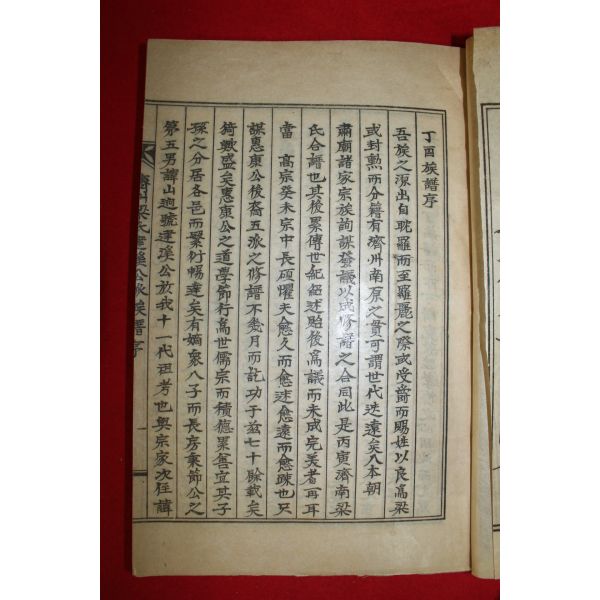 丁酉族譜序
吾族之源出自耽羅而至羅麗之際或受爵而賜姓以良爲梁
或封勲而分籍有濟州南原之貫可謂世代迭遠矣入本朝
肅廟諸家宗族詢謀發議以成修譜之合同此是丙寅濟南梁
氏合譜也其後累傳世紀紹述貽後爲議而未成完美者再耳
當 高宗癸未宗中長碩懼夫愈久而愈迷愈遠而愈疎也只
謀惠康公後裔五派之修譜不幾月而訖功于茲七十餘載矣
猗歟盛矣惠康公之道學節行爲世儒宗而積德累善宜其子
孫之分居各邑而繁衍暢達矣有嫡衆八子而長房秉節公之
第五男諱山逈號建溪公放我十一代祖考也與宗家次侄諱
濟州梁氏建溪公派族譜序 一